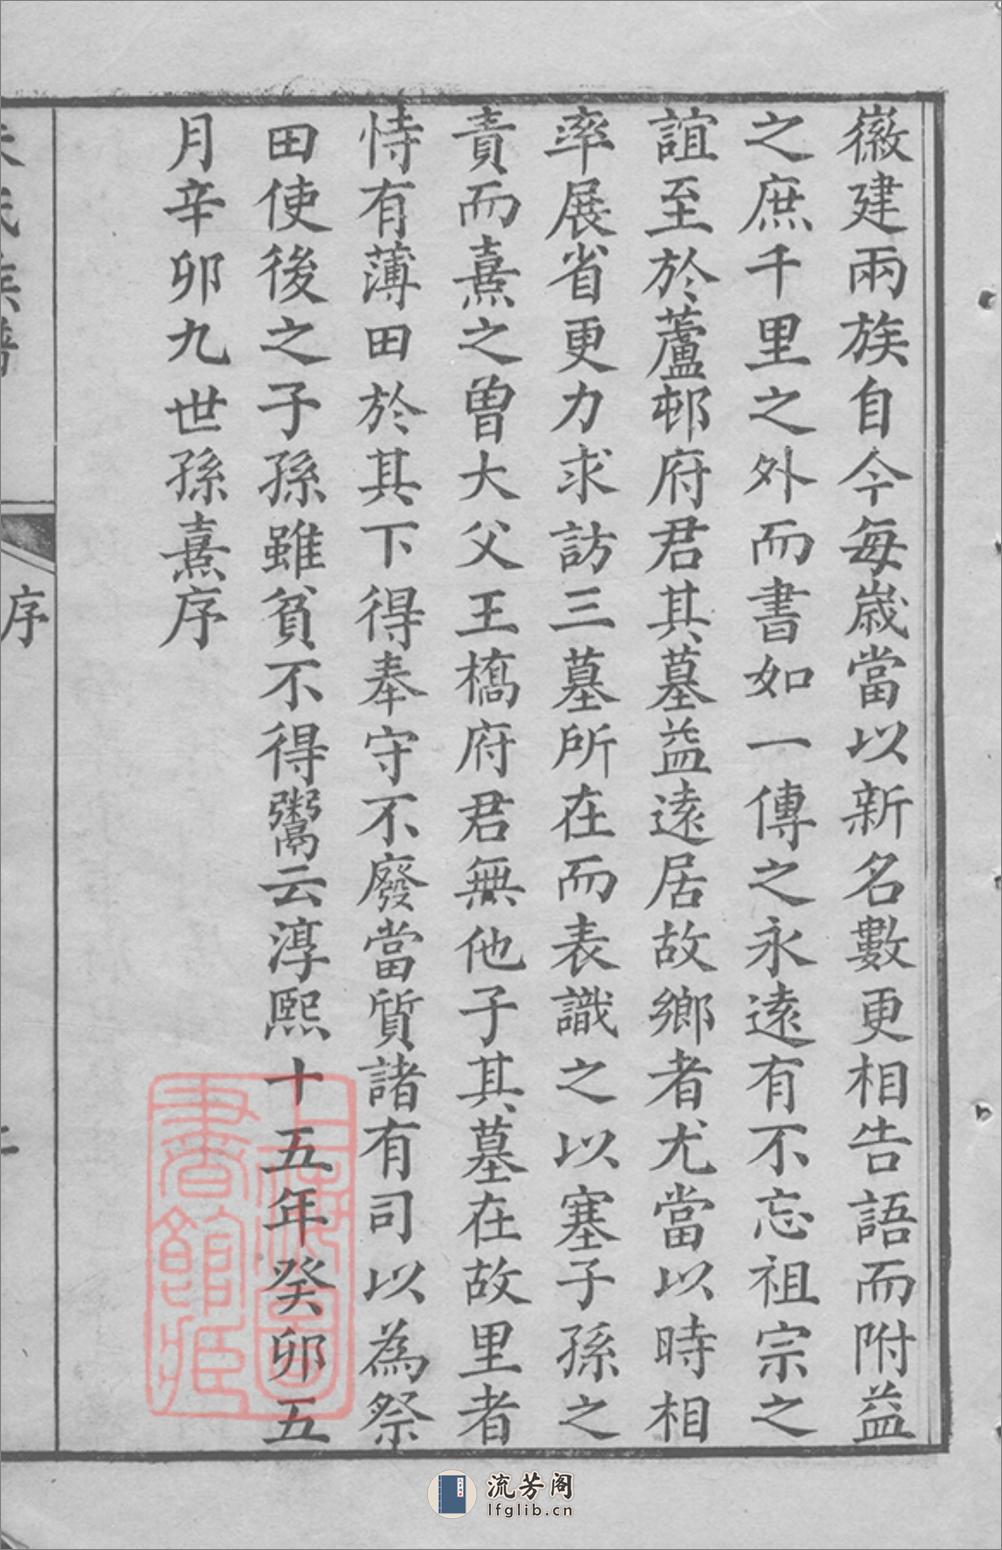 徽建兩族自今每歲當以新名數更相告語而附益
之庶千里之外而書如一傳之永遠有不忘祖宗之
誼至於蘆邨府君其墓益遠居故鄉者尤當以時相
率展省更力求訪三墓所在而表識之以塞子孫之
責而熹之曾大父王橋府君無他子其墓在故里者
恃有薄田於其下得奉守不廢當質諸有司以為祭
田使後之子孫雖貧不得鬻云淳熙十五年癸卯五
月辛卯九世孫熹序
朱氏族譜
序
上海圖書館藏
流芳阁
lfglib.cn